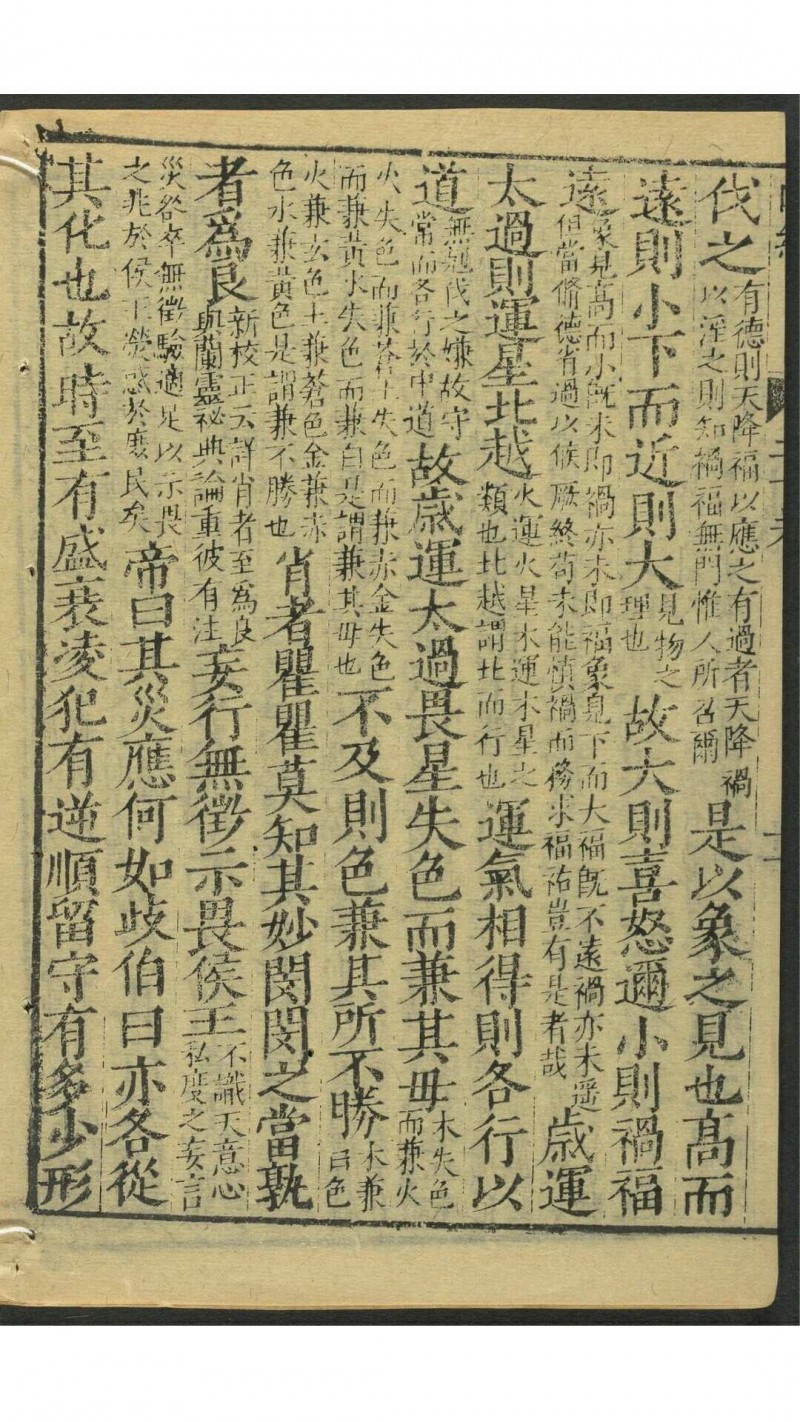 伐之有德則天降福以應之有過者天降禍以淫之則知禍福無門惟人所召爾是以象之見也高而
遠則小下而近則大見物之理也故大則喜怒邇小則禍福
遠象見高而小旣未即禍亦未即福象見下而大福旣不遠禍亦未遥但當脩德省過以候厥終苟未能慎禍而務求福祐豈有是者哉歲運
太過則運星北越火運火星木運木星之類也北越謂北而行也運氣相得則各行以
道無剋伐之嫌故守常而各行於中道故歲運太過畏星失色而兼其母木失色而兼火
火失色而兼蒼土失色而兼赤金失色而兼黃水失色而兼白是謂兼其母也不及則色兼其所不勝木兼白色
火兼玄色土兼蒼色金兼赤色水兼黃色是謂兼不勝也肖者瞿瞿莫知其妙閔閔之當孰
者爲良新校正云詳肖者至爲良與蘭靈祕典論重彼有注妄行無徵示畏侯王不識天意心私度之妄言
災咎卒無徵驗適足以示畏之兆於侯王熒惑於庶民矣帝曰其災應何如歧伯曰亦各從
其化也故時至有盛衰凌犯有逆順留守有多少形